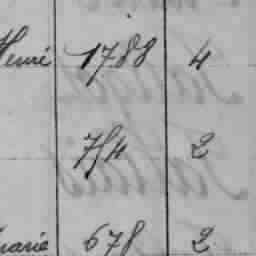 Henri 1788 4
754 2
marie 678 2